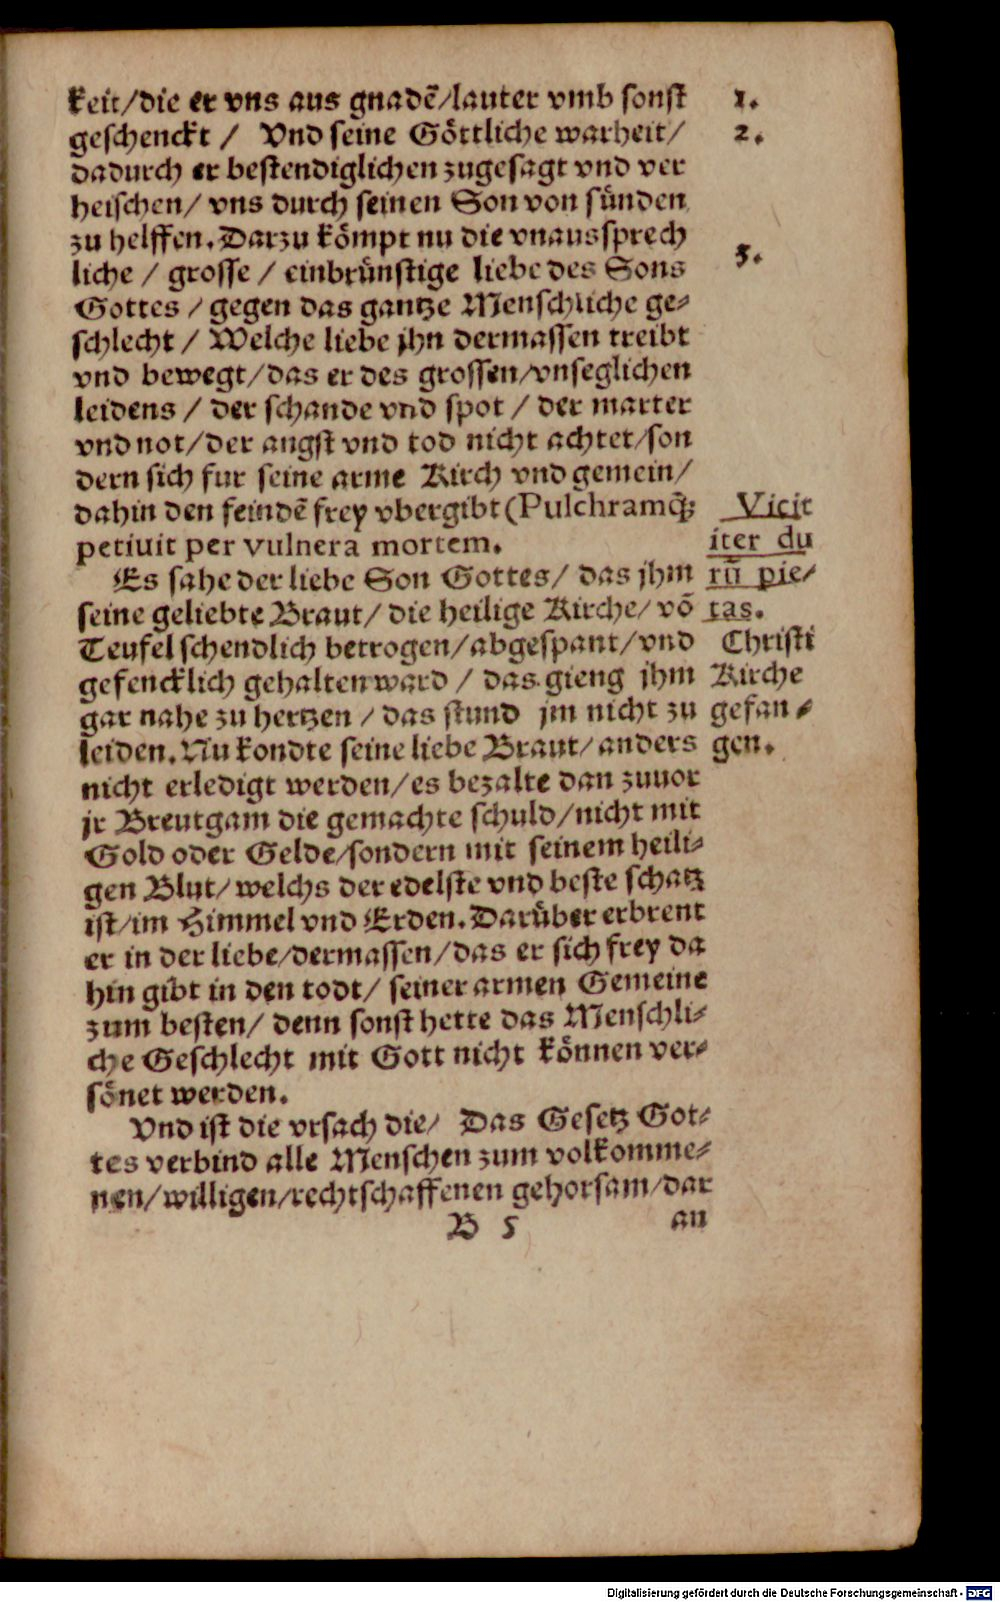 keit/die er vns aus gnadẽ/lauter vmb sonst
1.
geschenckt / Vnd seine Göttliche warheit/
2.
dadurch er bestendiglichen zugesagt vnd ver
heischen/ vns durch seinen Son von sünden
zu helffen. Darzu kömpt nu die vnaussprech
3.
liche / grosse / einbrünstige liebe des Sons
Gottes / gegen das gantze Menschliche ge-
schlecht / Welche liebe jhn dermassen treibt
vnd bewegt/das er des grossen/vnseglichen
leidens / der schande vnd spot / der marter
vnd not/der angst vnd tod nicht achtet/son
dern sich fur seine arme Kirch vnd gemein/
dahin den feindẽ frey vbergibt (Pulchramq́;
petiuit per vulnera mortem.
Vicit
iter du
rũ pie/
tas.
Es sahe der liebe Son Gottes/ das jhm
seine geliebte Braut/ die heilige Kirche/ võ
Teufel schendlich betrogen/abgespant/vnd
gefencklich gehalten ward / das gieng jhm
gar nahe zu hertzen / das stund jm nicht zu
leiden. Nu kondte seine liebe Braut/ anders
Christi
Kirche
gefan-
gen.
nicht erledigt werden/es bezalte dan zuuor
jr Breutgam die gemachte schuld/nicht mit
Gold oder Gelde/sondern mit seinem heili-
gen Blut/welchs der edelste vnd beste schatz
ist/im Himmel vnd Erden. Darüber erbrent
er in der liebe/dermassen/das er sich frey da
hin gibt in den todt/ seiner armen Gemeine
zum besten/ denn sonst hette das Menschli-
che Geschlecht mit Gott nicht können ver-
sönet werden.
Vnd ist die vrsach die/ Das Gesetz Got-
tes verbind alle Menschen zum volkomme-
nen/willigen/rechtschaffenen gehorsam/dar
B 5 an
Digitalisierung gefördert durch die Deutsche Forschungsgemeinschaft - DFG